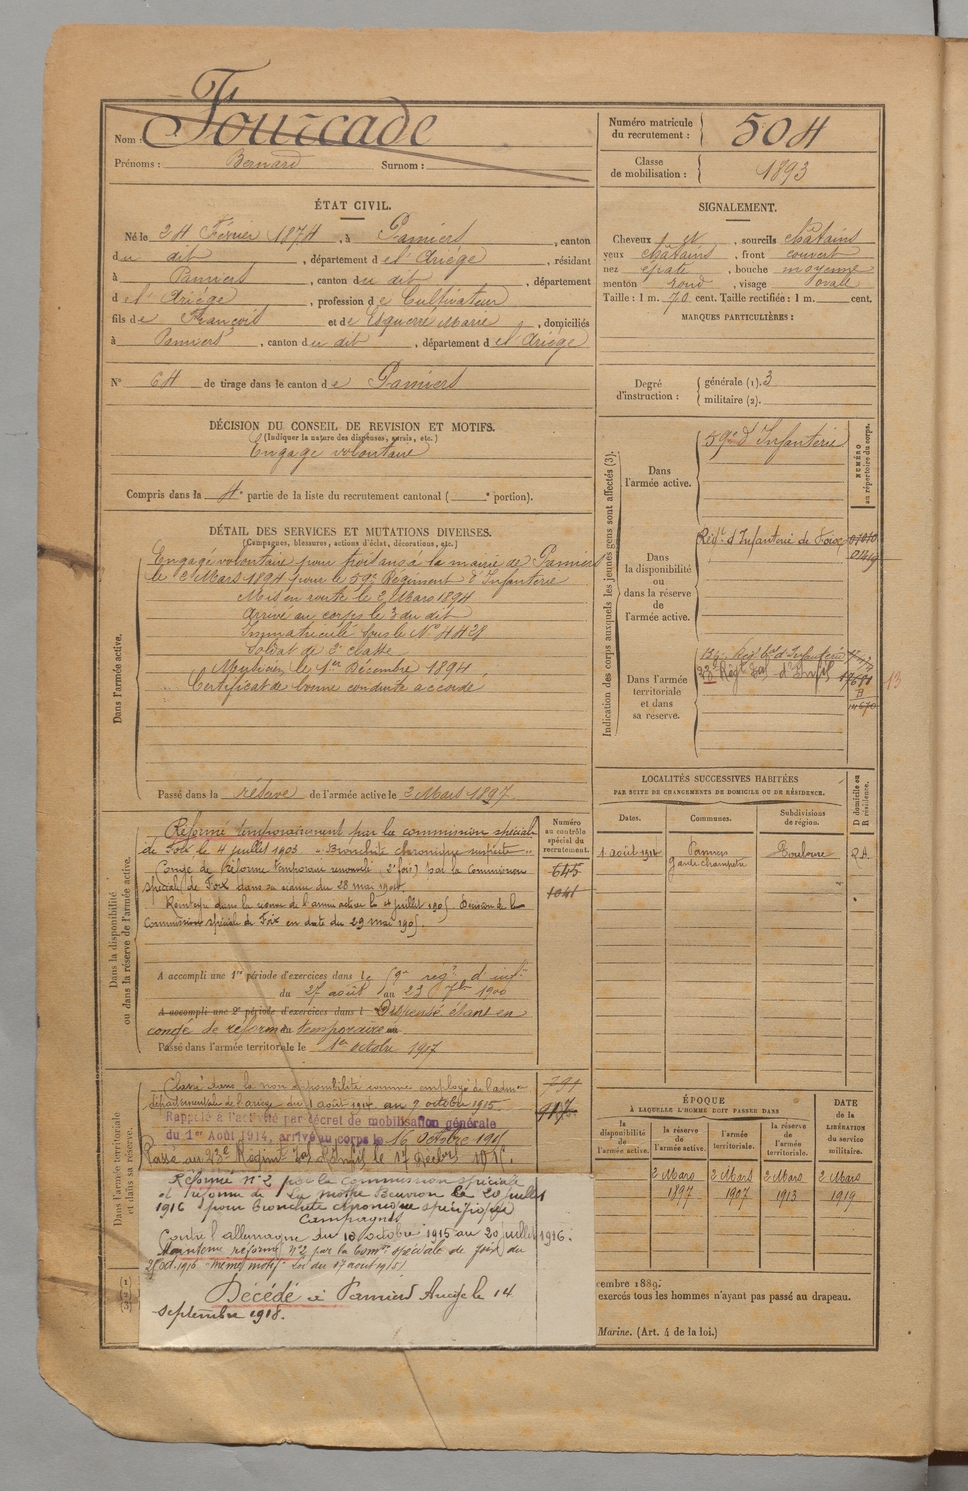 Nom : Fourcade
Prénoms : Bernard Surnom :
Numéro matricule du recrutement : 504
Classe de mobilisation : 1893
ÉTAT CIVIL.
Né le 24 Février 1874, à Pamiers, canton
du dit, département de l'Ariège, résidant
à Pamiers, canton du dit, département
de l'Ariège, profession de Cultivateur
fils de François et de Esquerré Marie, domiciliés
à Pamiers, canton du dit, département de l'Ariège
N° 64 de tirage dans le canton de Pamiers
SIGNALEMENT.
Cheveux et, sourcils châtains
yeux châtains, front couvert
nez épaté, bouche moyenne
menton rond, visage ovale
Taille : 1 m. 70 cent. Taille rectifiée : 1 m. cent.
MARQUES PARTICULIÈRES :
Degré d'instruction : générale (1). 3
militaire (2).
DÉCISION DU CONSEIL DE REVISION ET MOTIFS.
(Indiquer la nature des dispenses, sursis, etc.)
Engagé volontaire
Compris dans la 4e partie de la liste du recrutement cantonal ( e portion).
DÉTAIL DES SERVICES ET MUTATIONS DIVERSES.
(Campagnes, blessures, actions d'éclat, décorations, etc.)
Dans l'armée active.
Engagé volontaire pour trois ans à la mairie de Pamiers
le 2 Mars 1894 pour le 59e Régiment d'Infanterie
Mis en route le 2 Mars 1894
Arrivé au corps le 3 du dit
Immatriculé sous le N° 4428
Soldat de 2e classe
Musicien le 1er Décembre 1894
Certificat de bonne conduite accordé
Passé dans la réserve de l'armée active le 2 Mars 1897
Indication des corps auxquels les jeunes gens sont affectés (3).
NUMÉRO au répertoire du corps.
Dans l'armée active.
59e d'Infanterie
Dans la disponibilité ou dans la réserve de l'armée active.
Régt d'Infanterie de Foix
Dans l'armée territoriale et dans sa réserve.
23e Régt d'Infie
13
LOCALITÉS SUCCESSIVES HABITÉES
PAR SUITE DE CHANGEMENTS DE DOMICILE OU DE RÉSIDENCE.
Dates. Communes. Subdivisions de région. D domicile ou R résidence.
1 août 1914 Pamiers Toulouse R.A.
garde champêtre
Dans la disponibilité ou dans la réserve de l'armée active.
Numéro au contrôle spécial du recrutement.
Réformé temporairement par la commission spéciale
de Foix le 4 juillet 1903 Bronchite chronique suspecte
645
Congé de Réforme temporaire renouvelé (2e fois) par la commission
spéciale de Foix dans sa séance du 28 mai 1904.
1041
Réintégré dans la réserve de l'armée active le 4 juillet 1905 Décision de la
commission spéciale de Foix en date du 29 mai 1905.
A accompli une 1re période d'exercices dans le 59e rég. d'inf.
du 27 août au 23 7bre 1900
A accompli une 2e période d'exercices dans l Dispensé étant en
congé de réforme du temporaire au
Passé dans l'armée territoriale le 1er octobre 1907
Dans l'armée territoriale et dans sa réserve.
Classé dans la non disponibilité comme employé de l'adm.
départementale de l'ariège du 1 août 1914 au 9 octobre 1915.
Rappelé à l'activité par décret de mobilisation générale
du 1er Août 1914, arrivé au corps le 16 Octobre 1915
Passé au 23e Régiment d'Infie le 17
Réformé n° 2 par la commission spéciale
de réforme de La Motte Beuvron le 20 juillet
1916 pour bronchite chronique spécifique
Campagnes
Contre l'allemagne du 10 octobre 1915 au 20 juillet 1916.
Maintenu réformé n° 2 par la Comm. spéciale de Foix du
1916 même motif Loi du 17 août 1915
Décédé à Pamiers Ariège le 14
septembre 1918.
ÉPOQUE
À LAQUELLE L'HOMME DOIT PASSER DANS
DATE de la LIBÉRATION du service militaire.
la disponibilité de l'armée active. la réserve de l'armée active. l'armée territoriale. la réserve de l'armée territoriale.
2 Mars 2 Mars 2 Mars 2 Mars
1897 1907 1913 1919
cembre 1889.
exercés tous les hommes n'ayant pas passé au drapeau.
Marine. (Art. 4 de la loi.)